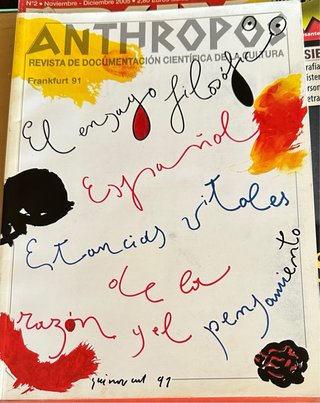 Nº2 • Noviembre - Diciembre 2005 • 2,80 Euros
ANTHROPOS
REVISTA DE DOCUMENTACIÓN CIENTÍFICA DE LA CULTURA
Frankfurt 91
El ensayo filosófico
Español
Estancias vitales
de la
razón y el pensamiento
91
SIE